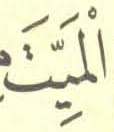 الْمَيِّتَ